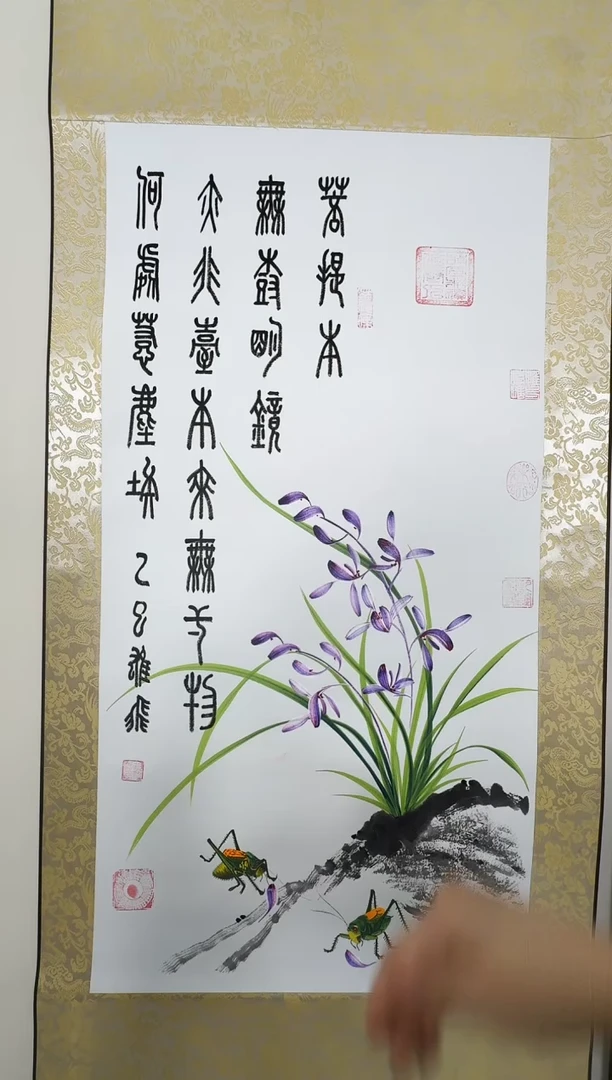 菩提本
無樹明鏡
亦非臺本來無一物
何處惹塵埃 乙巳